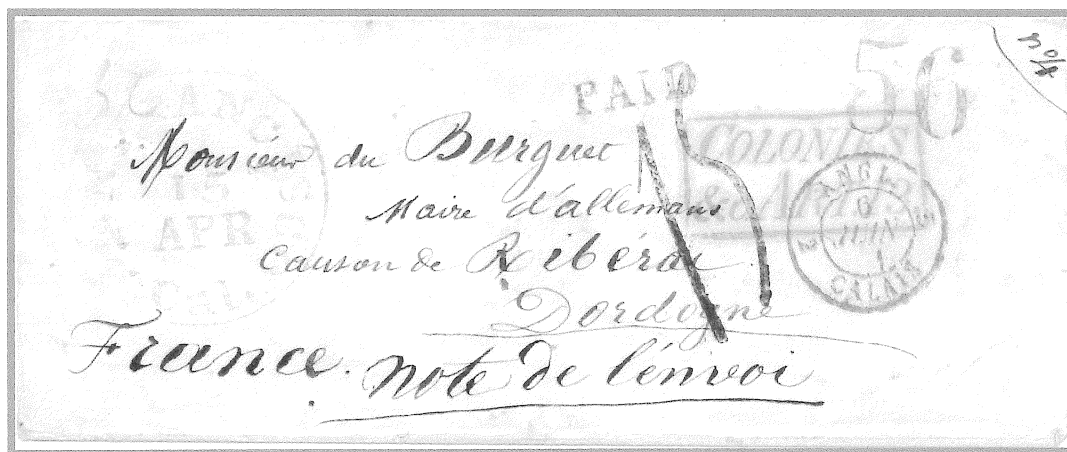 no 4
56
PAID
15
COLONIES
& ART.
ANGL.
2 6 2
JUIN
CALAIS
15
APR
Cal.
Monsieur du Burguet
Maire d'allemans
Canson de Ribérac
Dordogne
France. note de l'envoi